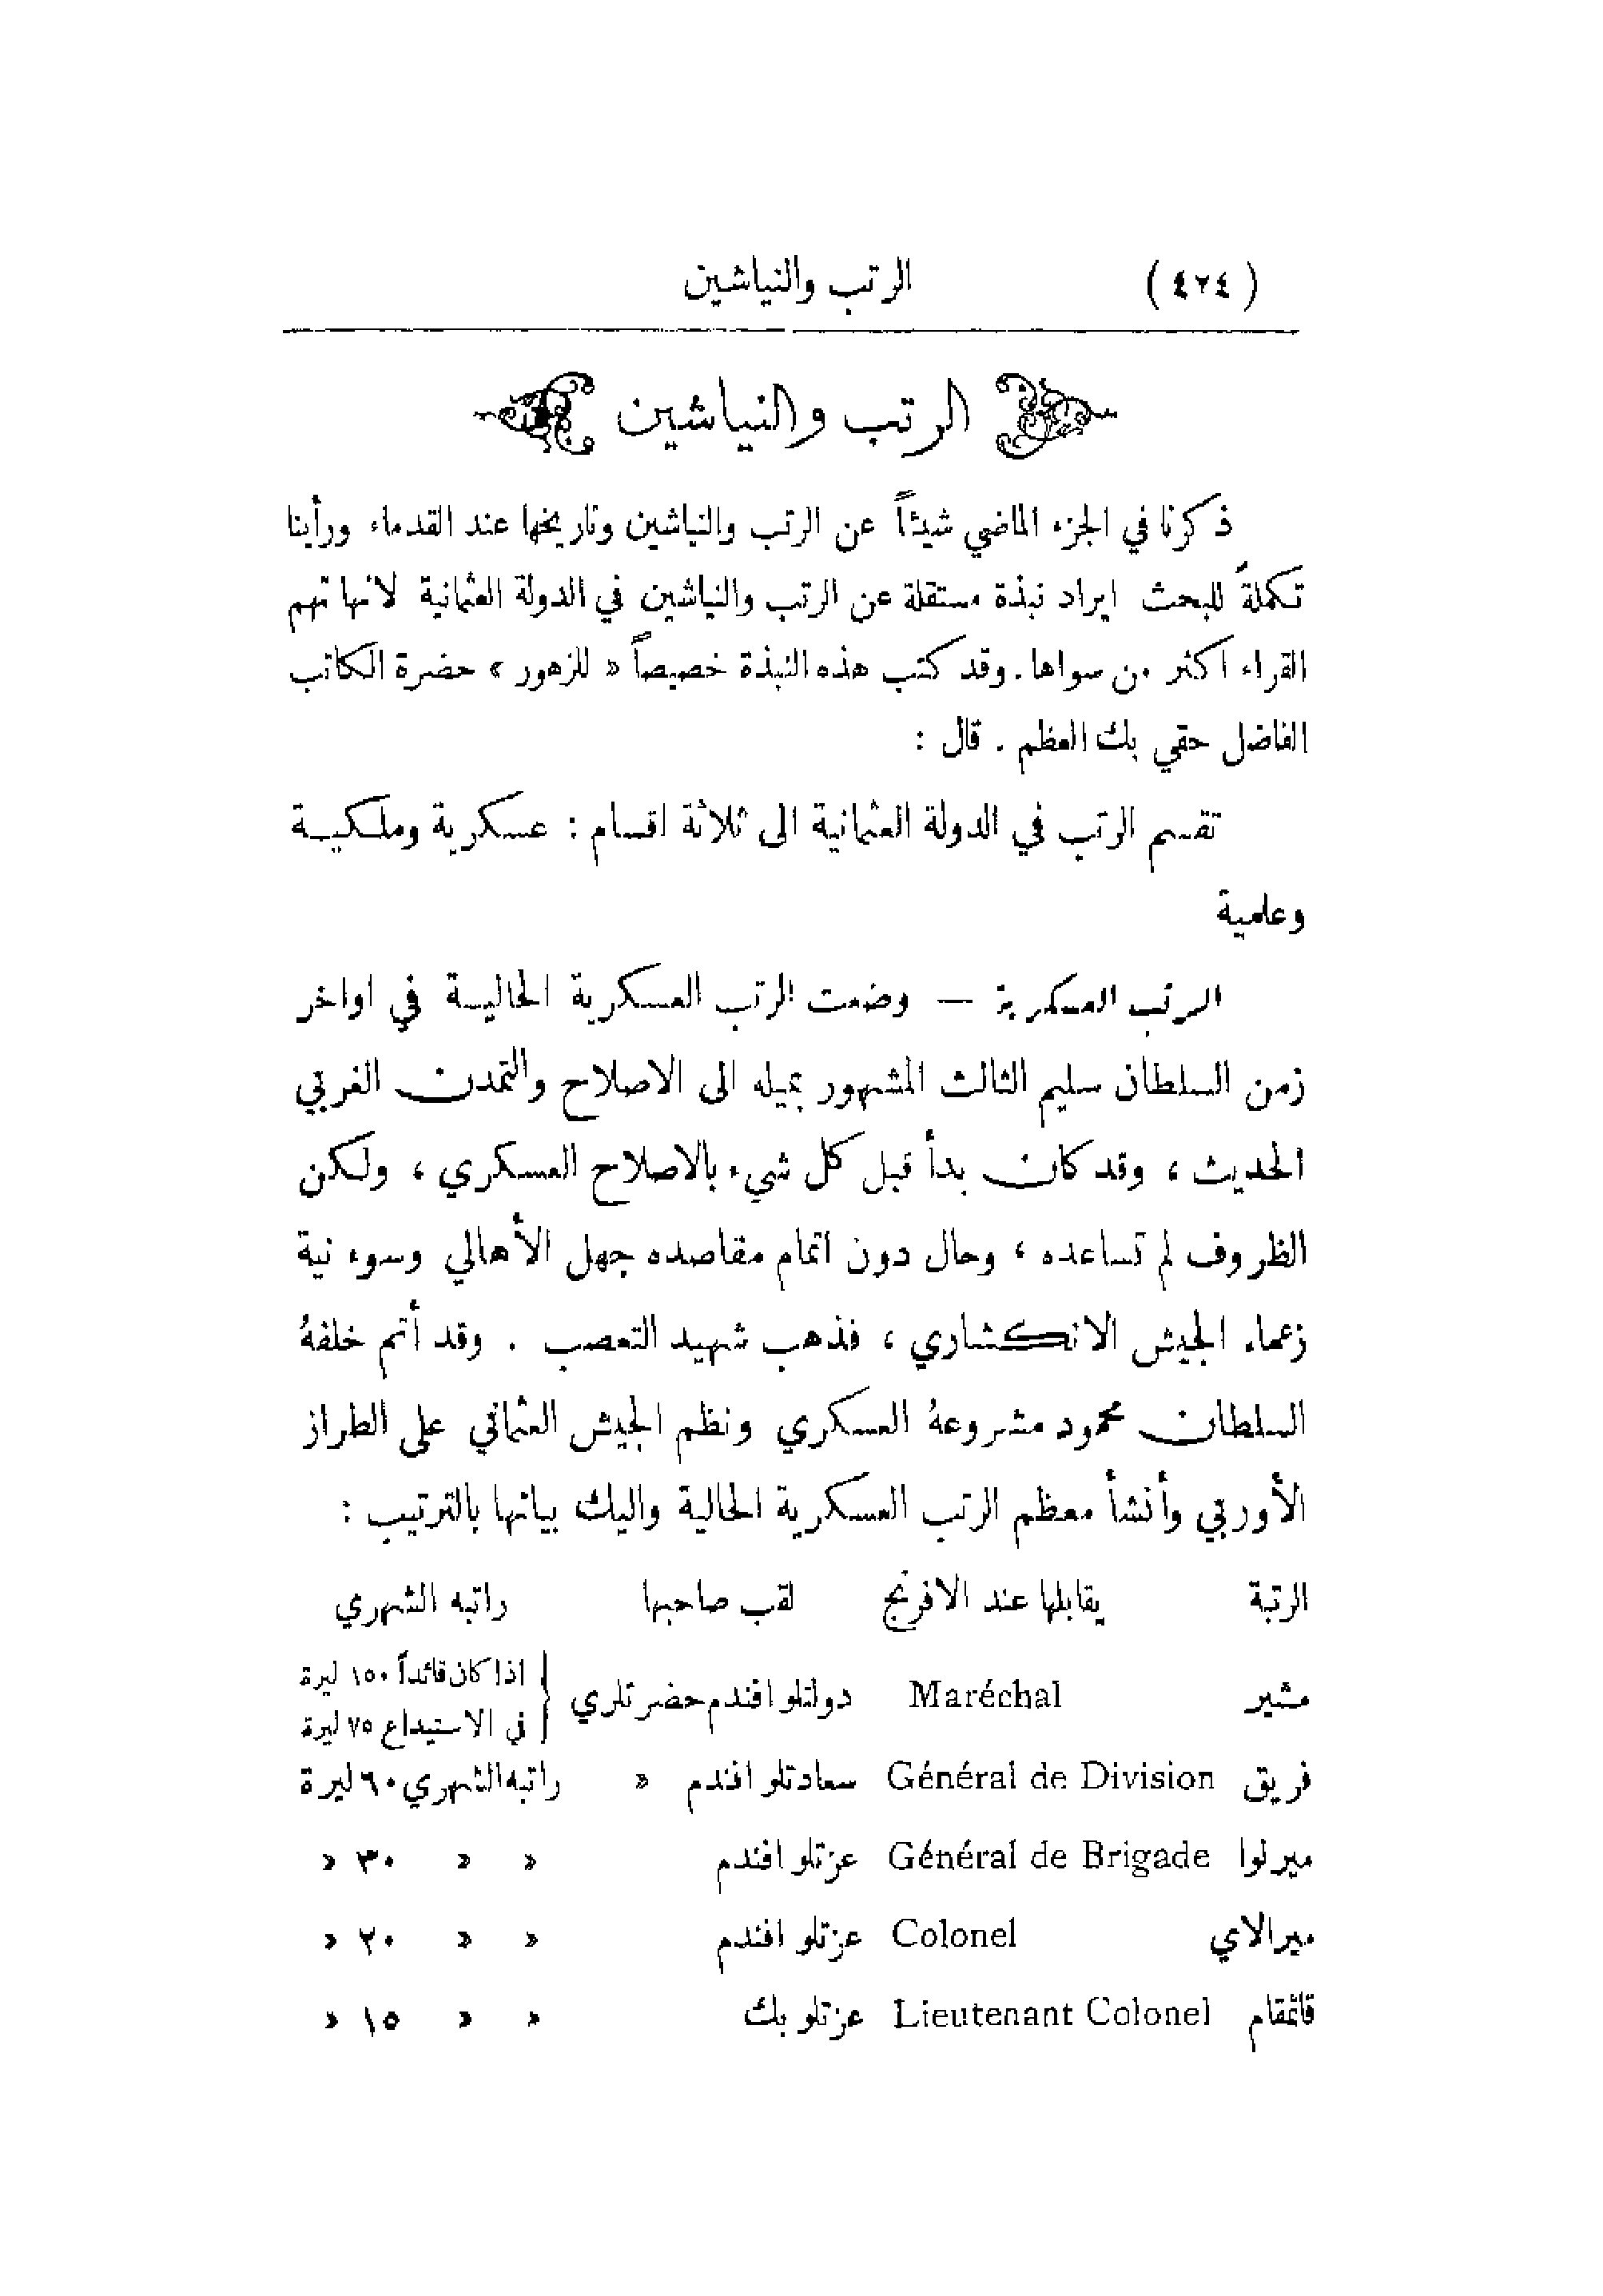 (٤٢٤) الرتب والنياشين
الرتب والنياشين
ذكرنا في الجزء الماضي شيئاً عن الرتب والنياشين وتاريخها عند القدماء ورأينا
تكملةً للبحث ايراد نبذة مستقلة عن الرتب والنياشين في الدولة العثمانية لانها تهم
القراء اكثر من سواها . وقد كتب هذه النبذة خصيصاً « للزهور » حضرة الكاتب
الفاضل حقي بك العظم . قال :
تقسم الرتب في الدولة العثمانية الى ثلاثة اقسام : عسكرية وملكية
وعلمية
الرتب العسكرية — وضعت الرتب العسكرية الحالية في اواخر
زمن السلطان سليم الثالث المشهور بميله الى الاصلاح والتمدن الغربي
الحديث ، وقد كان بدأ قبل كل شيء بالاصلاح العسكري ، ولكن
الظروف لم تساعده ، وحال دون اتمام مقاصده جهل الأهالي وسوء نية
زعماء الجيش الانكشاري ، فذهب شهيد التعصب . وقد أتم خلفهُ
السلطان محمود مشروعهُ العسكري ونظم الجيش العثماني على الطراز
الأوربي وأنشأ معظم الرتب العسكرية الحالية واليك بيانها بالترتيب :
الرتبة يقابلها عند الافرنج لقب صاحبها راتبه الشهري
مشير Maréchal دولتلو افندم حضرتلري { اذا كان قائداً ١٥٠ ليرة
في الاستيداع ٧٥ ليرة
فريق Général de Division سعادتلو افندم » راتبه الشهري ٦٠ ليرة
ميرلوا Général de Brigade عزتلو افندم » » ٣٠ »
ميرالاي Colonel عزتلو افندم » » ٢٠ »
قائمقام Lieutenant Colonel عزتلو بك » » ١٥ »